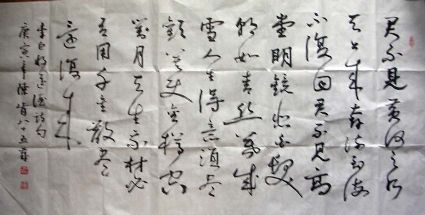 君不見黄河之水
天上来奔流到海
不復回君不見高
堂明鏡悲白髮
朝如青丝暮成
雪人生得意須尽
歡莫使金樽空
對月天生我材必
有用千金散尽
還復来
李白将進酒诗句
庚寅年 八十五歲